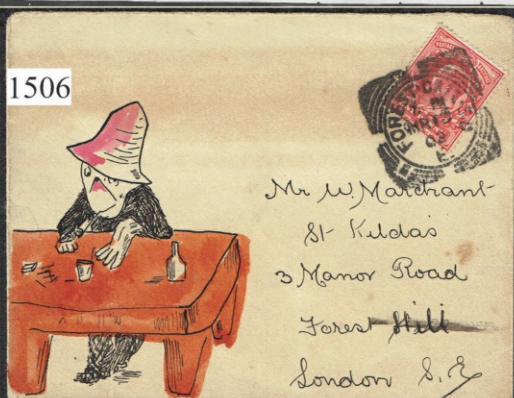 1506
FOREST GATE
MR 15
02
Mr W. Marchant
St Kilda's
3 Manor Road
Forest Hill
London S. E.